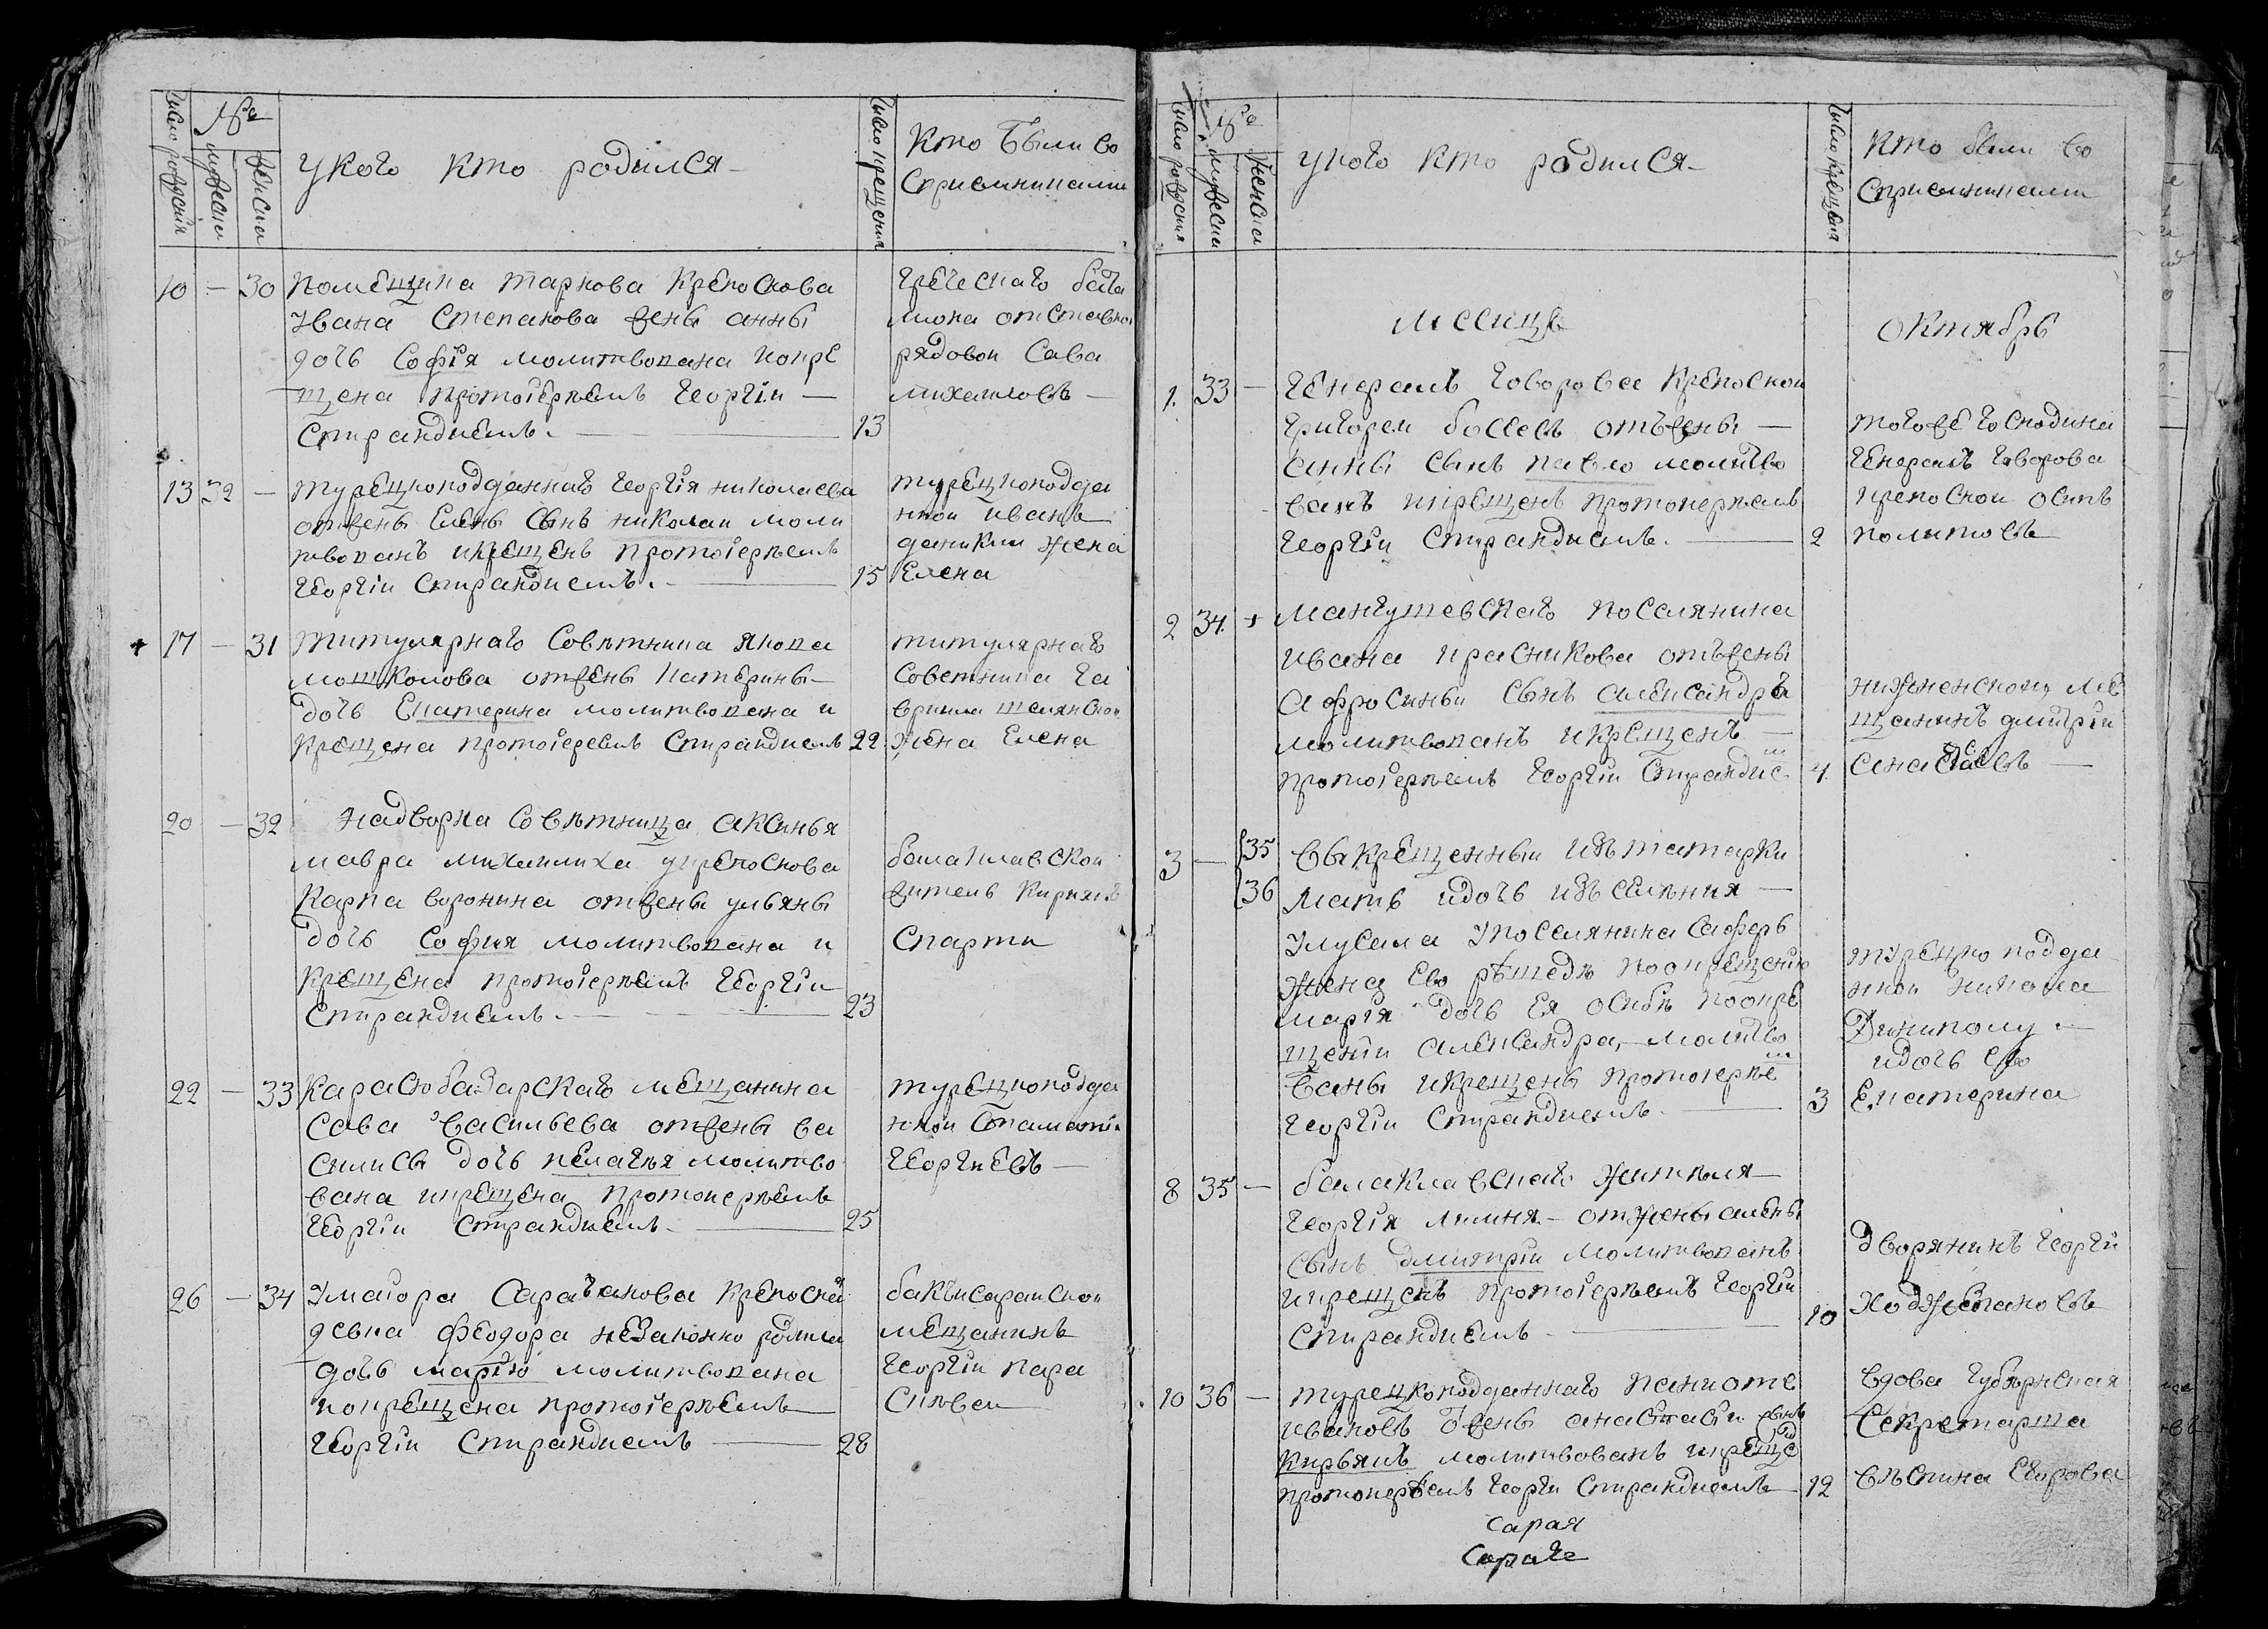 Число рождения
№е
мужеска
женска
У кого кто родился
Число крещения
Кто были во
сприемниками
10 — 30 помещика тарнова крепоснова
Ивана Степанова жены анны
дочь Софія молитвована и окре
щена протоіереемъ георгіи —
Спирандиемъ. — 13
греческаго бата
лиона отставно
рядовои Сава
михаиловъ —
13 32 — турецкоподданнаго георгія николаева
от жены елены сынъ николаи моли
твованъ и крещенъ протоіереемъ
георгіи Спирандиемъ. — 15
турецкоподда
ннои иванъ
жена
Елена
+ 17 — 31 титулярнаго Советника якова
мошколова от жены катерины —
дочь Екатерина молитвована и
крещена протоіереемъ Спирандиемъ 22
титулярнаго
Советника га
вриила
жена Елена
20 — 32 Надворна Советница аксинья
мавра михаилиха у крепоснова
карпа воронина от жены ульяны
дочь София молитвована и
крещена протоіереемъ георгіи
Спирандиемъ. — 23
балаклавскои
житель кириякъ
Спарти
22 — 33 Карасюбазарскаго мещанина
Сава васильева от жены ва
силисы дочь пелагея молитво
вана и крещена протоиереемъ
георгіи Спирандиемъ. — 25
турецкоподда
ннои Стамати
георгиевъ —
26 — 34 У маіора Сарачанова крепосна
девка феодора незаконно родила
дочь марію молитвована
и окрещена протоіереемъ
георгіи Спирандиемъ — 28
бакъчисараискои
мещанинъ
георгіи пара
Скивеи
Число рождения
№е
мужеска
женска
у кого кто родился
Число крещения
кто были во
сприемниками
месяцъ октябрь
1. 33 — генералъ говорова крепоскои
григореи от жены —
анны сынъ павло молитво
ванъ и крещенъ протоиереемъ
георгіи Спирандиемъ. — 2
того же господина
генералъ говорова
крепоскои осипъ
политовъ
2 34. + мангушевскаго поселянина
ивана красникова отъ жены
афросиньи сынъ александръ
молитвованъ и крещенъ —
протоіереемъ георгіи Спирандие 4.
мѣ
щанинъ дмитріи
3 — 35 выкрещенныи изъ татарки
36 мать и дочь изъ селения —
Улусала У поселянина Саферъ
жена ево решеде по окрещению
марія дочь ея осибе по окре
щеніи александра, — молитво
ваны и крещены протоіерее
георгіи Спирандиемъ. — 3
турецко подда
ннои никола
Диниколу —
и дочь ево
Екатерина
8 35 — балаклавскаго жителя —
георгія от жены алены
сынъ дмитріи молитвованъ
и крещенъ протоіереемъ георгіи
Спирандиемъ — 10
дворянинъ георги
10 36 — турецкоподданнаго паниоте
ивановъ жены анастасіи сынъ
кирьякъ молитвованъ и креще
протоиереемъ георги Спирандиемъ — 12
вдова губернская
Секретарша
Егорова
Сарая
Сараче